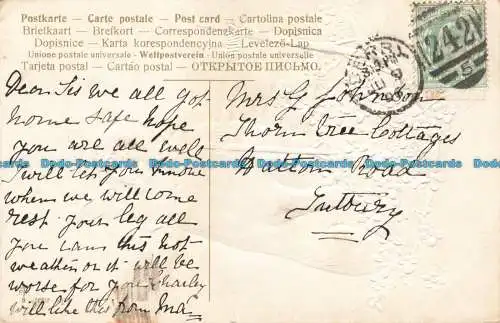 Postkarte – Carte postale – Post card – Cartolina postale
Briefkaart – Brefkort – Correspondenzkarte – Dopisnica
Dopisnice – Karta korespondencyjna – Levelező-Lap
Union postale universelle – Weltpostverein – Unione postale universale
Tarjeta postal – Cartão postal – ОТКРЫТОЕ ПИСЬМО.
DERBY
242
5
Dear Sis we all got
home safe hope
you are all well
I will let you know
when we will come
rest your leg all
you can this hot
weather or it will be
worse for you Charley
will like this from Ma
Mrs G Johnson
Thorn Tree Cottages
Hatton Road
Tutbury
Dodo-Postcards Dodo-Postcards Dodo-Postcards Dodo-Postcards